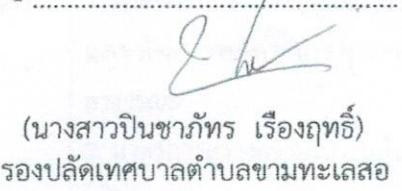 (นางสาวปินชาภัทร เรืองฤทธิ์)
รองปลัดเทศบาลตำบลขามทะเลสอ